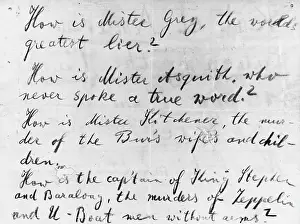 How is Mister Grey, the worlds
greatest lier?
How is Mister Asquith, who
never spoke a true word?
How is Mister Kitchener, the mur-
der of the Bur's wifes and chil-
dren
How is the captain of King Stephen
and Baralong, the murders of Zeppelin
and U-Boat men without arms?